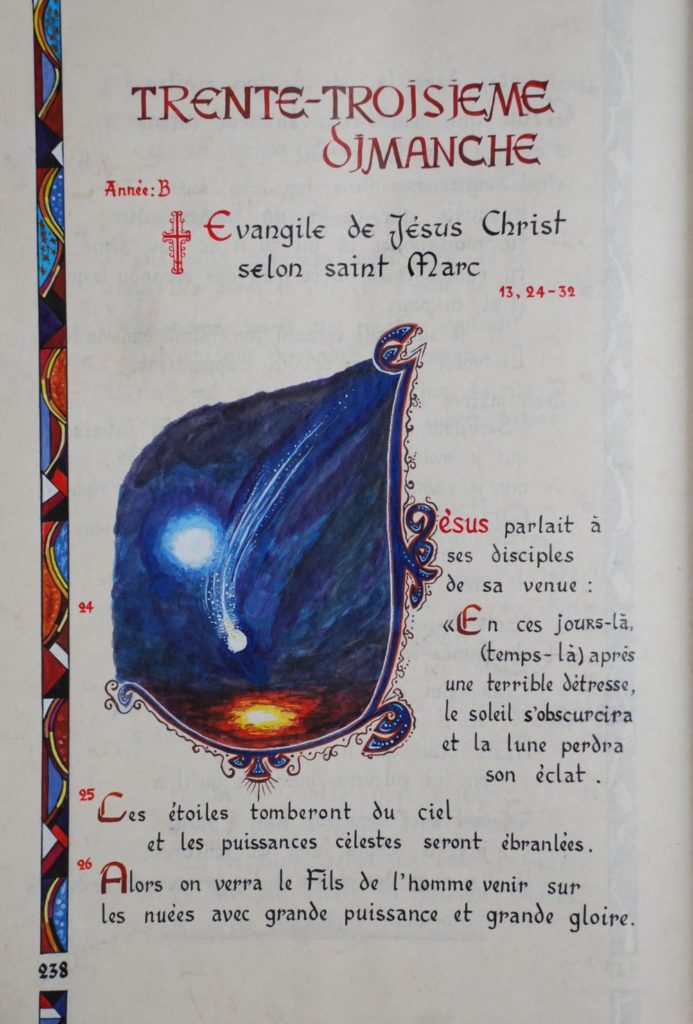 TRENTE-TROISIEME
DIMANCHE
Année: B
Evangile de Jésus Christ
selon saint Marc
13, 24-32
Jésus parlait à
ses disciples
de sa venue :
24
«En ces jours-là,
(temps-là) après
une terrible détresse,
le soleil s'obscurcira
et la lune perdra
son éclat.
25
Les étoiles tomberont du ciel
et les puissances célestes seront ébranlées.
26
Alors on verra le Fils de l'homme venir sur
les nuées avec grande puissance et grande gloire.
238